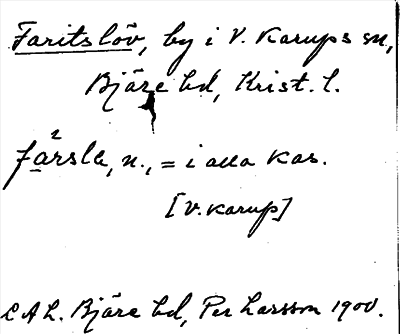 Faritslöv, by i V. Karups sn,
Bjäre hd, Krist. l.
fa²rsla, n., = i alla kas.
[V. Karup]
C A L. Bjäre hd, Per Larsson 1900.